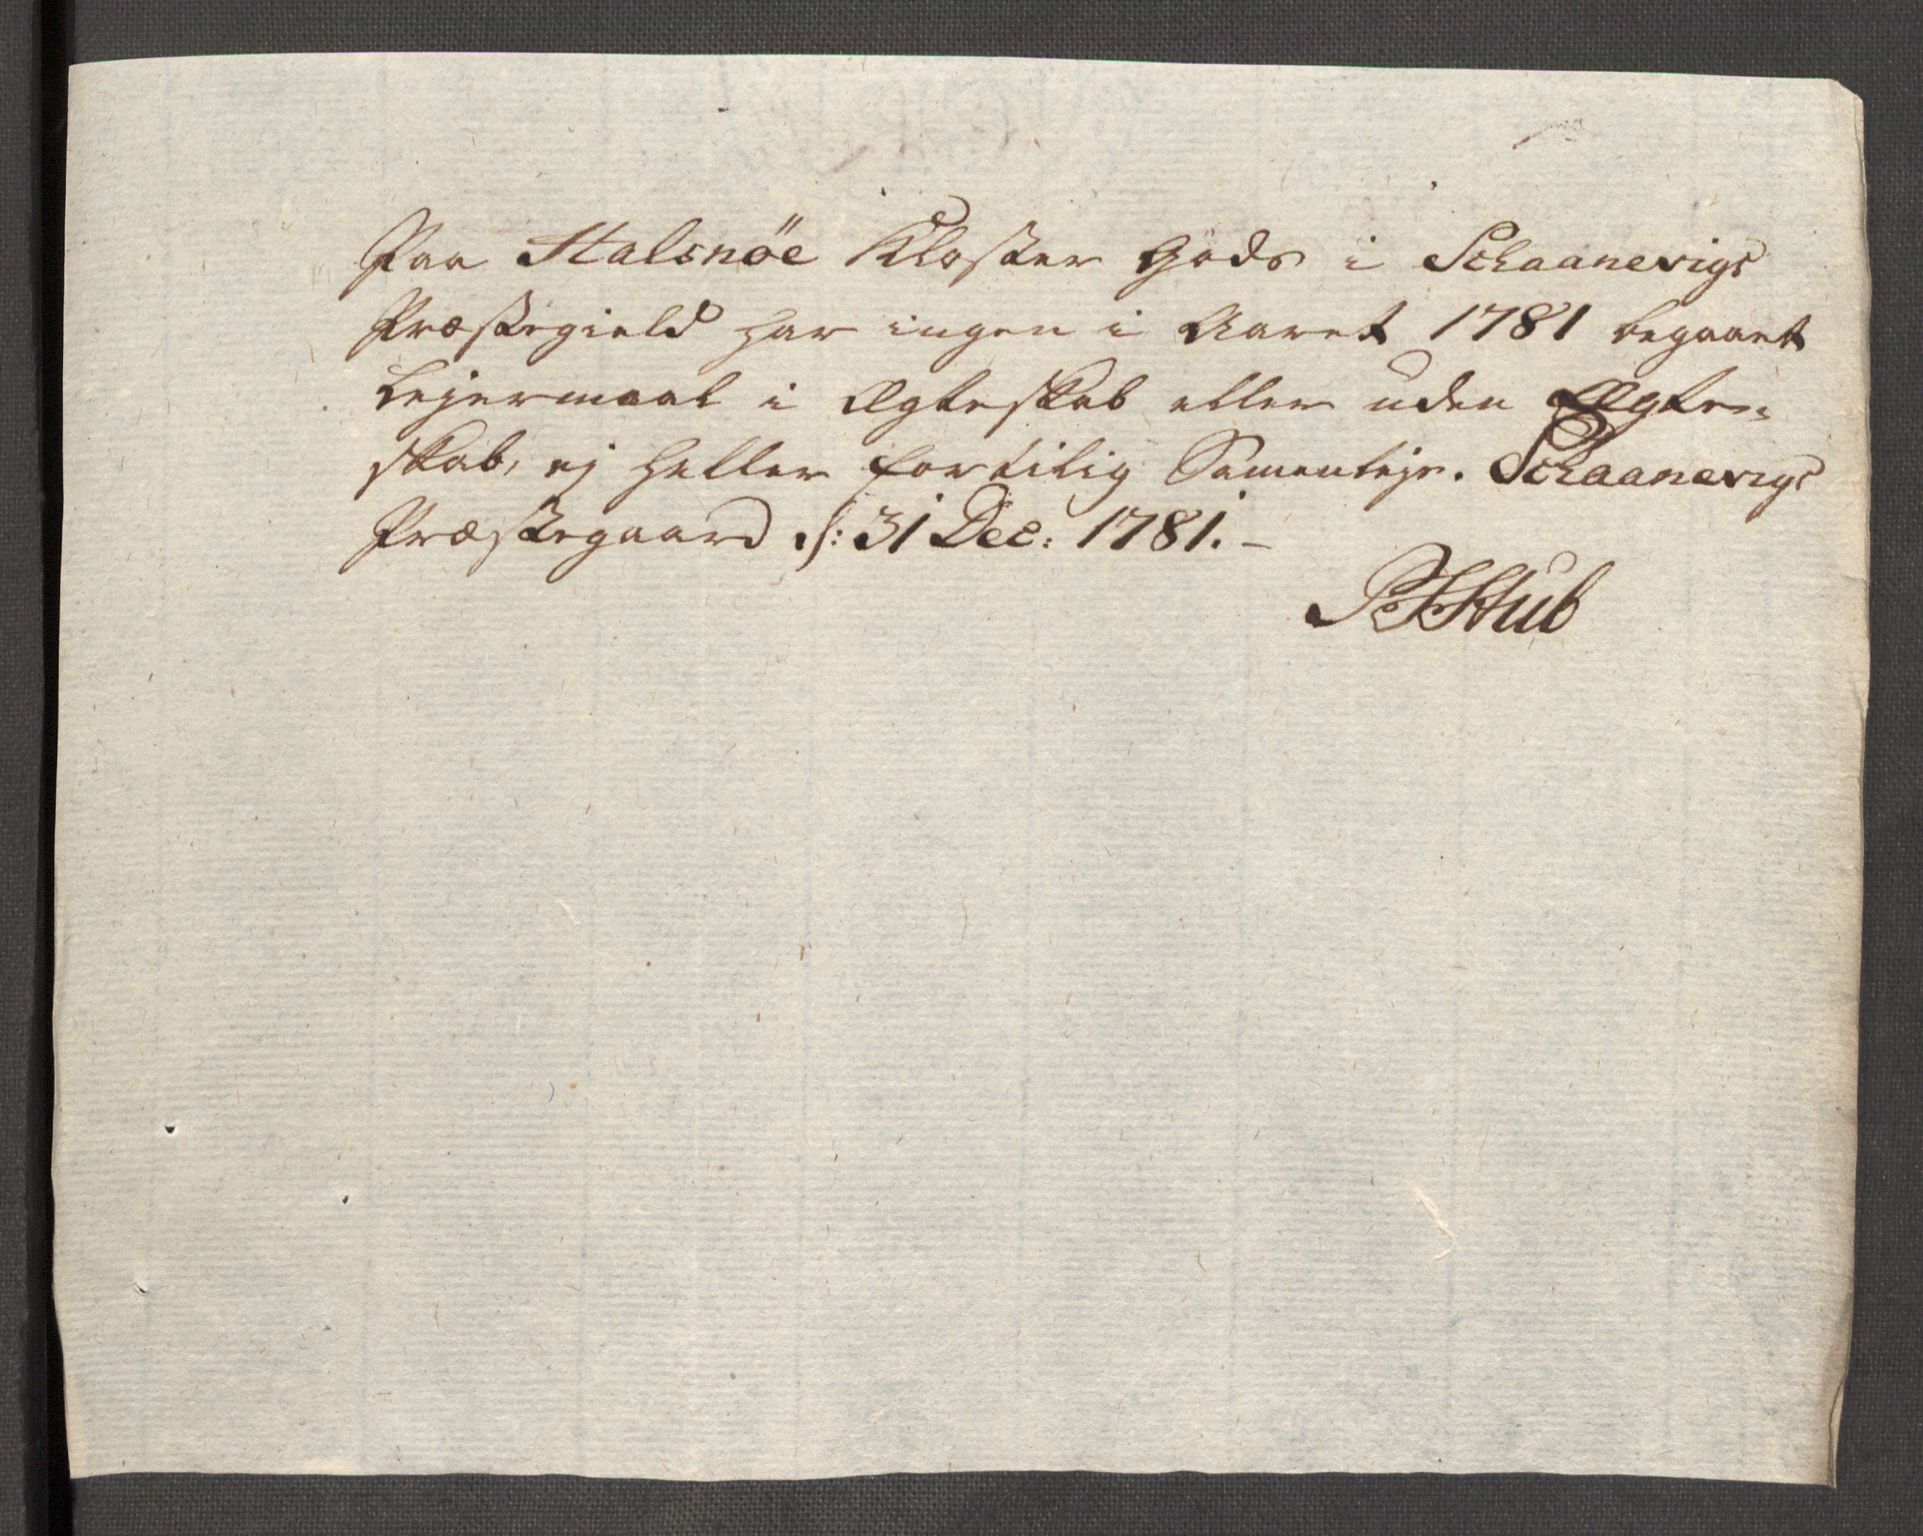 Paa Halsnöe Kloster Gods i Schaanevigs
Præstegield har ingen i Aaret 1781 begaaet
Lejermaal i Ægteskab eller uden Ægte-
skab, ej heller fortilig Samenleje. Schaanevigs
Præstegaard d: 31 Dec: 1781. -
Stub